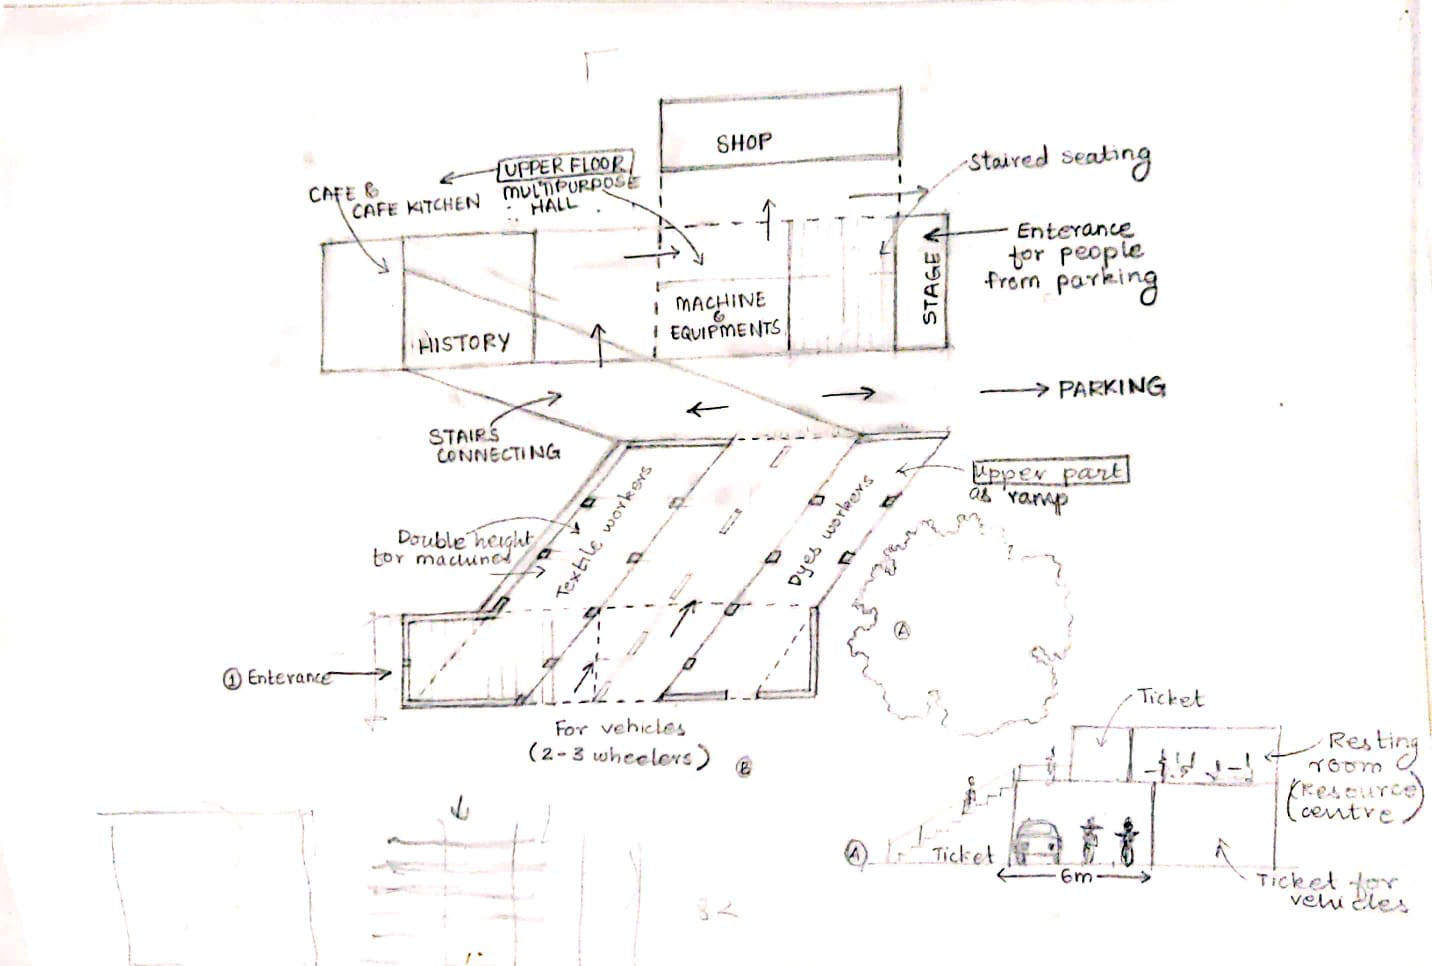 SHOP
Staired seating
UPPER FLOOR
MULTIPURPOSE
HALL
CAFE &
CAFE KITCHEN
Enterance
for people
from parking
STAGE
MACHINE
&
EQUIPMENTS
HISTORY
PARKING
STAIRS
CONNECTING
upper part
as ramp
Textile workers
Dyes workers
Double height
for machines
A
1 Enterance
For vehicles
(2-3 wheelers)
B
Ticket
Resting
room
(Resource
centre)
A
Ticket
6m
Ticket for
vehicles